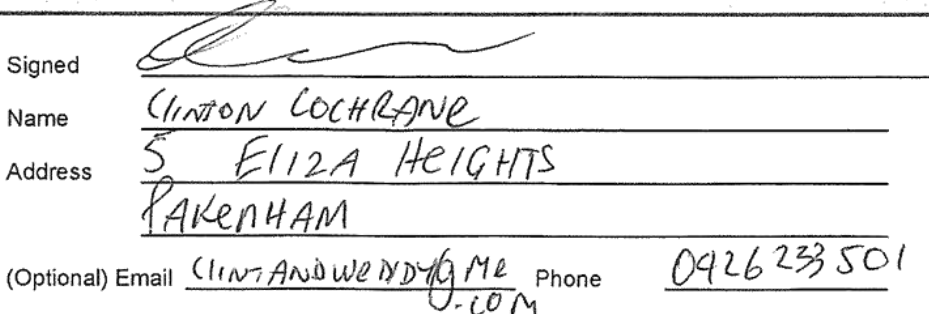 Signed
Name CLINTON COCHRANE
Address 5 ELIZA HEIGHTS
PAKENHAM
(Optional) Email CLINTANDWENDY@ME.COM Phone 0426 233 501